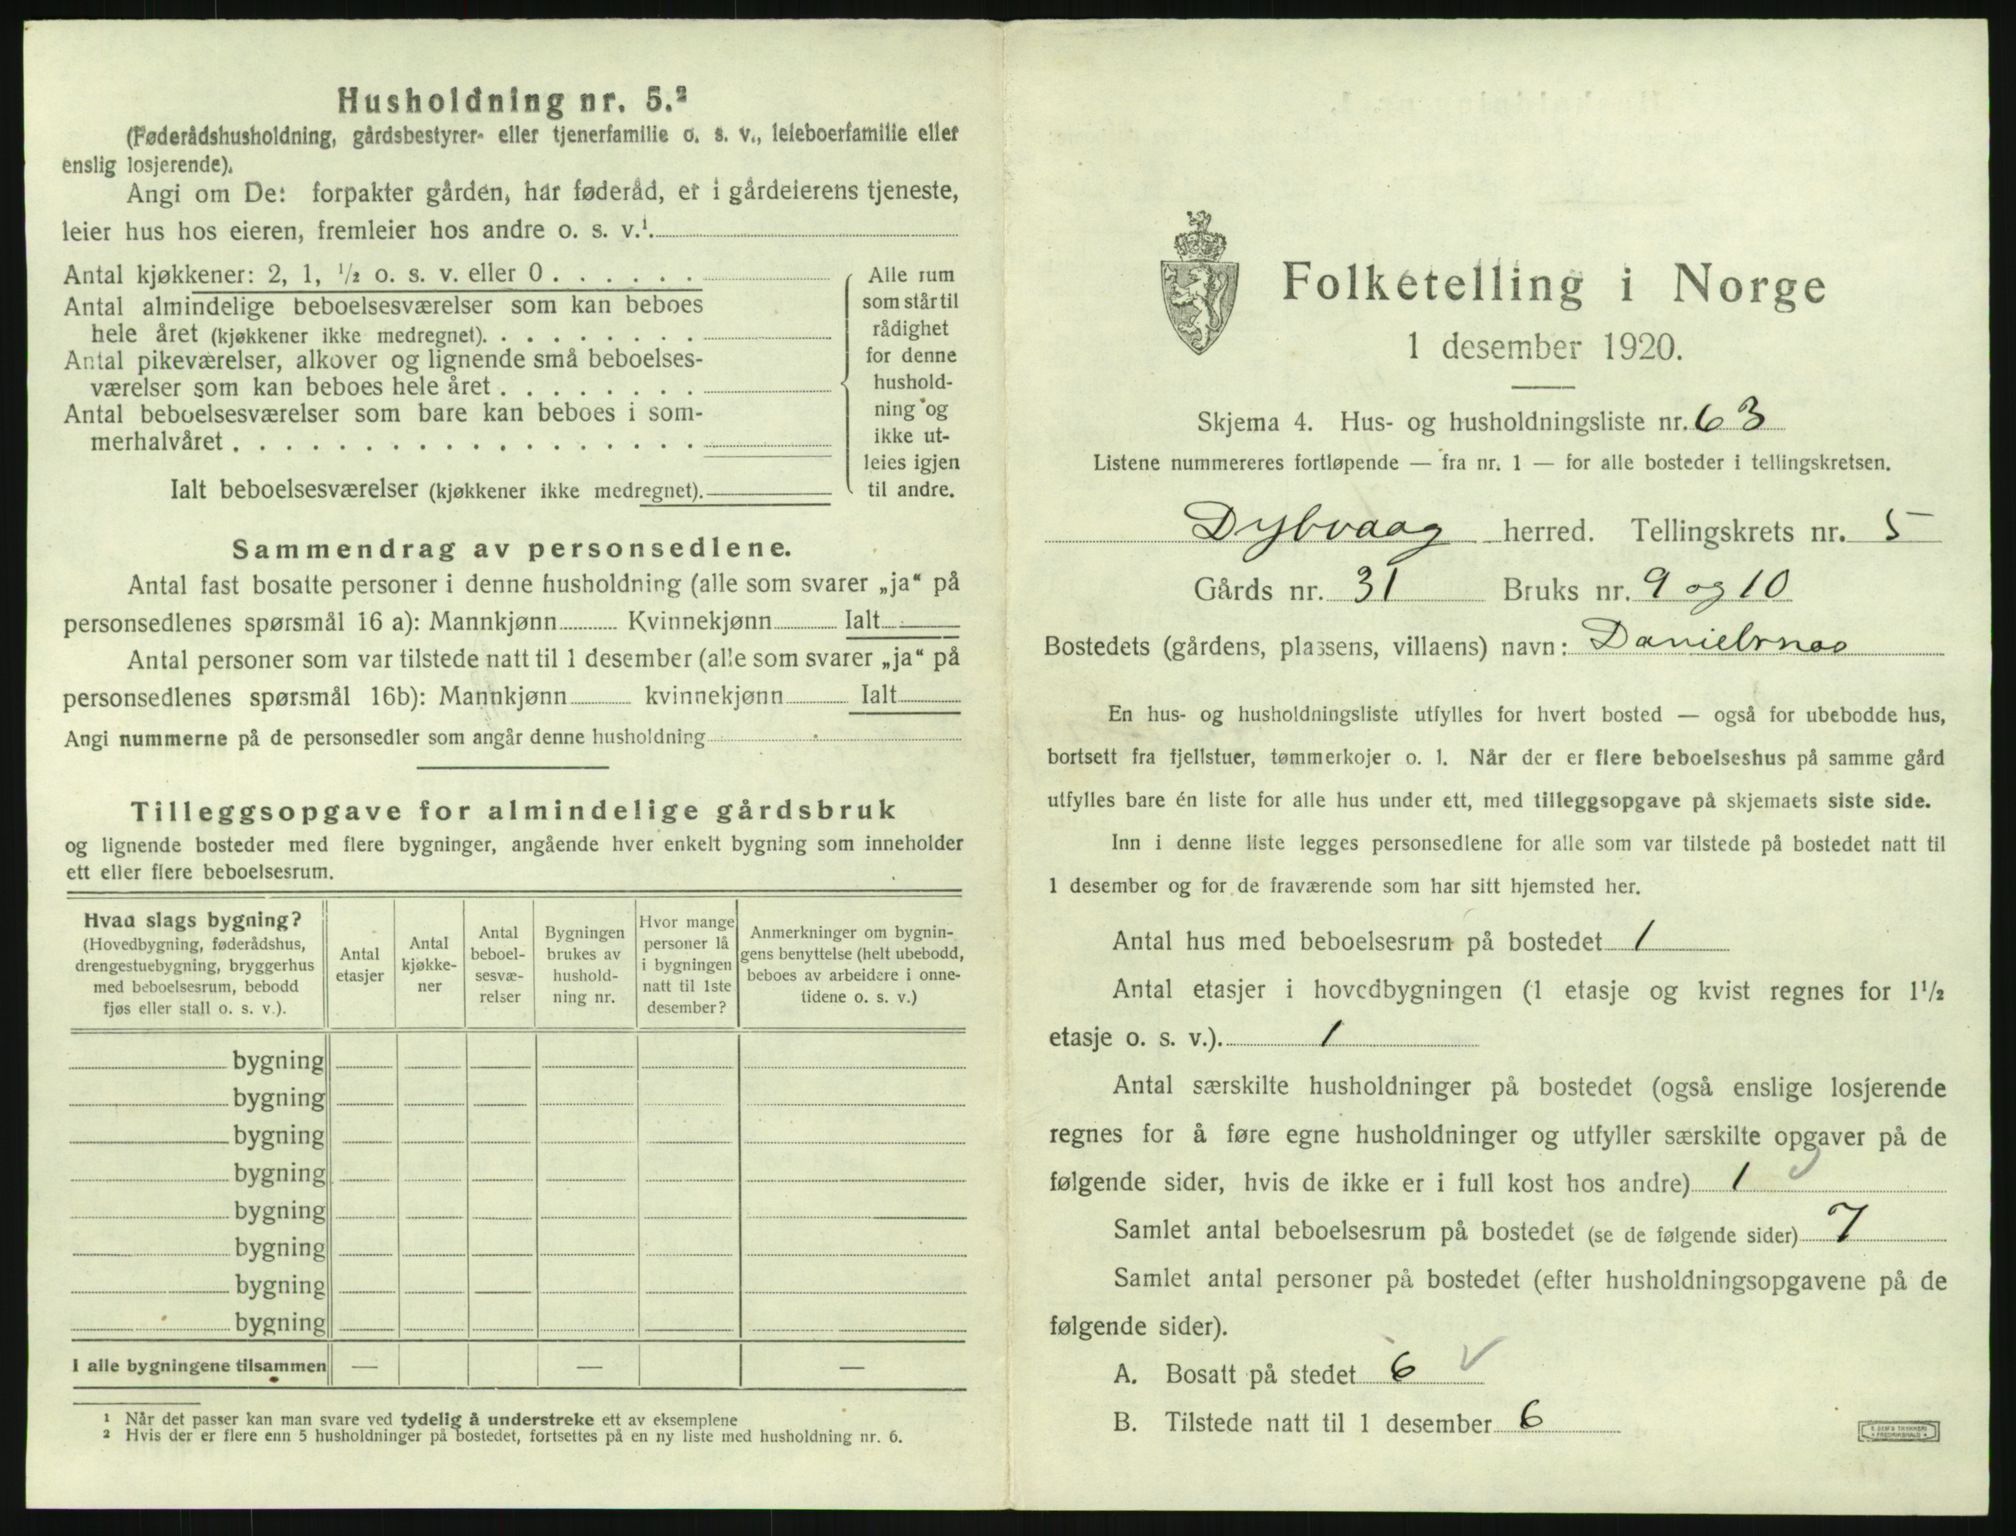 Husholdning nr. 5.²
(Føderådshusholdning, gårdsbestyrer- eller tjenerfamilie o. s. v., leieboerfamilie eller
enslig losjerende).
Angi om De: forpakter gården, har føderåd, er i gårdeierens tjeneste,
leier hus hos eieren, fremleier hos andre o. s. v.¹.
Antal kjøkkener: 2, 1, ½ o. s. v. eller 0 . . . . . .
Antal almindelige beboelsesværelser som kan beboes
hele året (kjøkkener ikke medregnet). . . . . . . . .
Antal pikeværelser, alkover og lignende små beboelses-
værelser som kan beboes hele året . . . . . . . .
Antal beboelsesværelser som bare kan beboes i som-
merhalvåret . . . . . . . . . . . . . . . . . .
Ialt beboelsesværelser (kjøkkener ikke medregnet).
Alle rum
som står til
rådighet
for denne
hushold-
ning og
ikke ut-
leies igjen
til andre.
Sammendrag av personsedlene.
Antal fast bosatte personer i denne husholdning (alle som svarer „ja“ på
personsedlenes spørsmål 16 a): Mannkjønn Kvinnekjønn Ialt
Antal personer som var tilstede natt til 1 desember (alle som svarer „ja“ på
personsedlenes spørsmål 16b): Mannkjønn kvinnekjønn Ialt
Angi nummerne på de personsedler som angår denne husholdning
Tilleggsopgave for almindelige gårdsbruk
og lignende bosteder med flere bygninger, angående hver enkelt bygning som inneholder
ett eller flere beboelsesrum.
Hvad slags bygning?
(Hovedbygning, føderådshus,
drengestuebygning, bryggerhus
med beboelsesrum, bebodd
fjøs eller stall o. s. v.).
Antal
etasjer
Antal
kjøkke-
ner
Antal
beboel-
sesvæ-
relser
Bygningen
brukes av
hushold-
ning nr.
Hvor mange
personer lå
i bygningen
natt til 1ste
desember?
Anmerkninger om bygnin-
gens benyttelse (helt ubebodd,
beboes av arbeidere i onne-
tidene o. s. v.)
bygning
bygning
bygning
bygning
bygning
bygning
bygning
bygning
I alle bygningene tilsammen — — —
¹ Når det passer kan man svare ved tydelig å understreke ett av eksemplene
² Hvis der er flere enn 5 husholdninger på bostedet, fortsettes på en ny liste med husholdning nr. 6.
Folketelling i Norge
1 desember 1920.
Skjema 4. Hus- og husholdningsliste nr. 63
Listene nummereres fortløpende — fra nr. 1 — for alle bosteder i tellingskretsen.
Dybvaag herred. Tellingskrets nr. 5
Gårds nr. 31 Bruks nr. 9 og 10
Bostedets (gårdens, plassens, villaens) navn: Danielsnes
En hus- og husholdningsliste utfylles for hvert bosted — også for ubebodde hus,
bortsett fra fjellstuer, tømmerkojer o. l. Når der er flere beboelseshus på samme gård
utfylles bare én liste for alle hus under ett, med tilleggsopgave på skjemaets siste side.
Inn i denne liste legges personsedlene for alle som var tilstede på bostedet natt til
1 desember og for de fraværende som har sitt hjemsted her.
Antal hus med beboelsesrum på bostedet 1
Antal etasjer i hovedbygningen (1 etasje og kvist regnes for 1½
etasje o. s. v.). 1
Antal særskilte husholdninger på bostedet (også enslige losjerende
regnes for å føre egne husholdninger og utfyller særskilte opgaver på de
følgende sider, hvis de ikke er i full kost hos andre) 1
Samlet antal beboelsesrum på bostedet (se de følgende sider) 7
Samlet antal personer på bostedet (efter husholdningsopgavene på de
følgende sider).
A. Bosatt på stedet 6 √
B. Tilstede natt til 1 desember 6